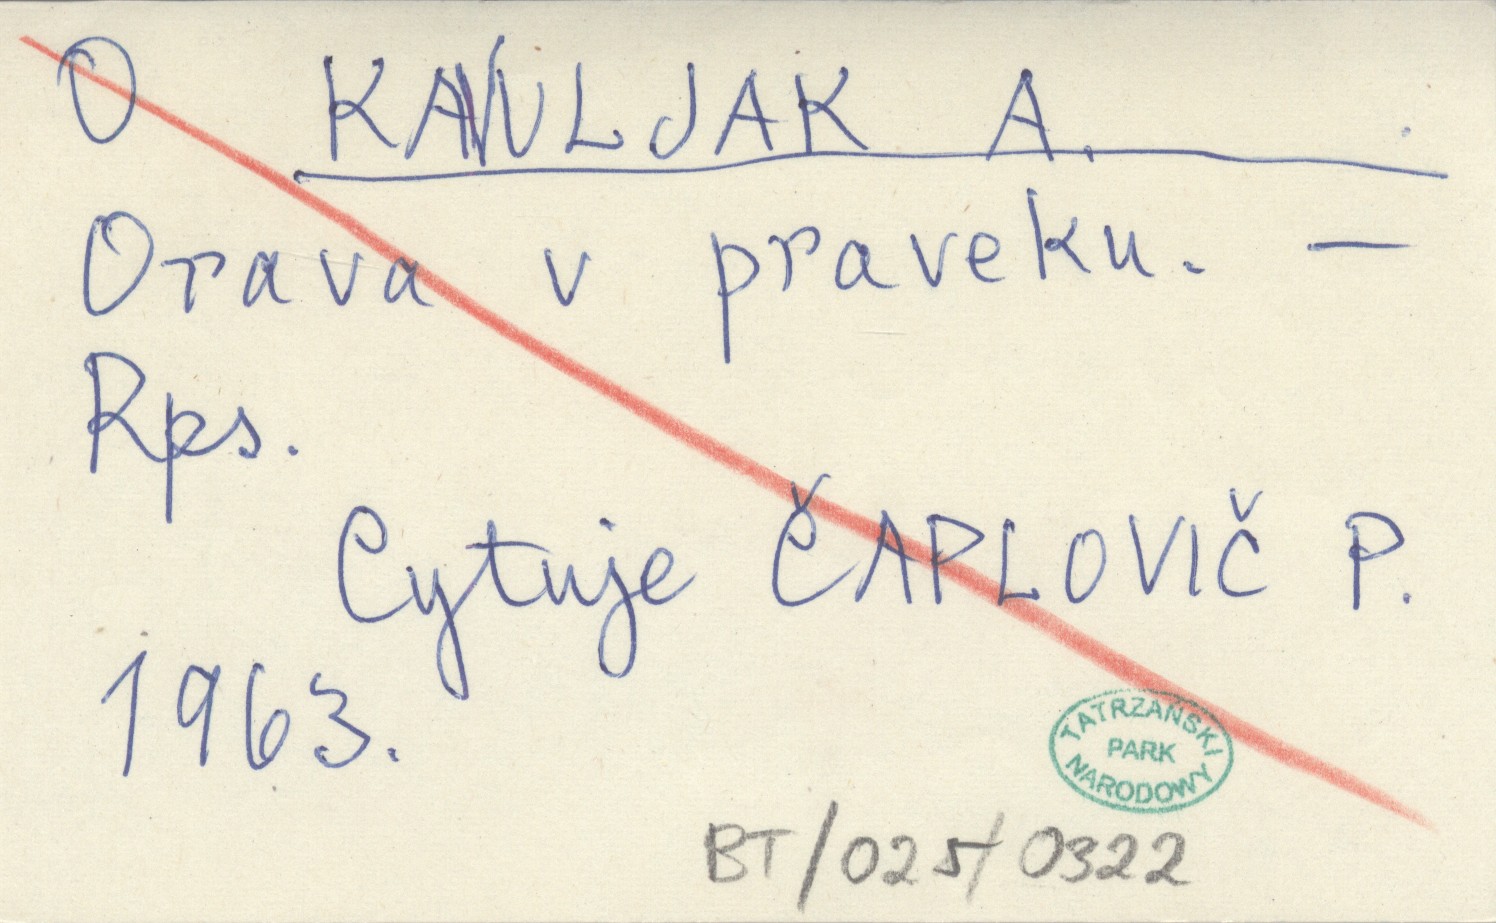 O KAVULJAK A.
Orava v praveku. —
Rps.
Cytuje ČAPLOVIČ P.
1963.
TATRZAŃSKI
PARK
NARODOWY
BT/025/0322